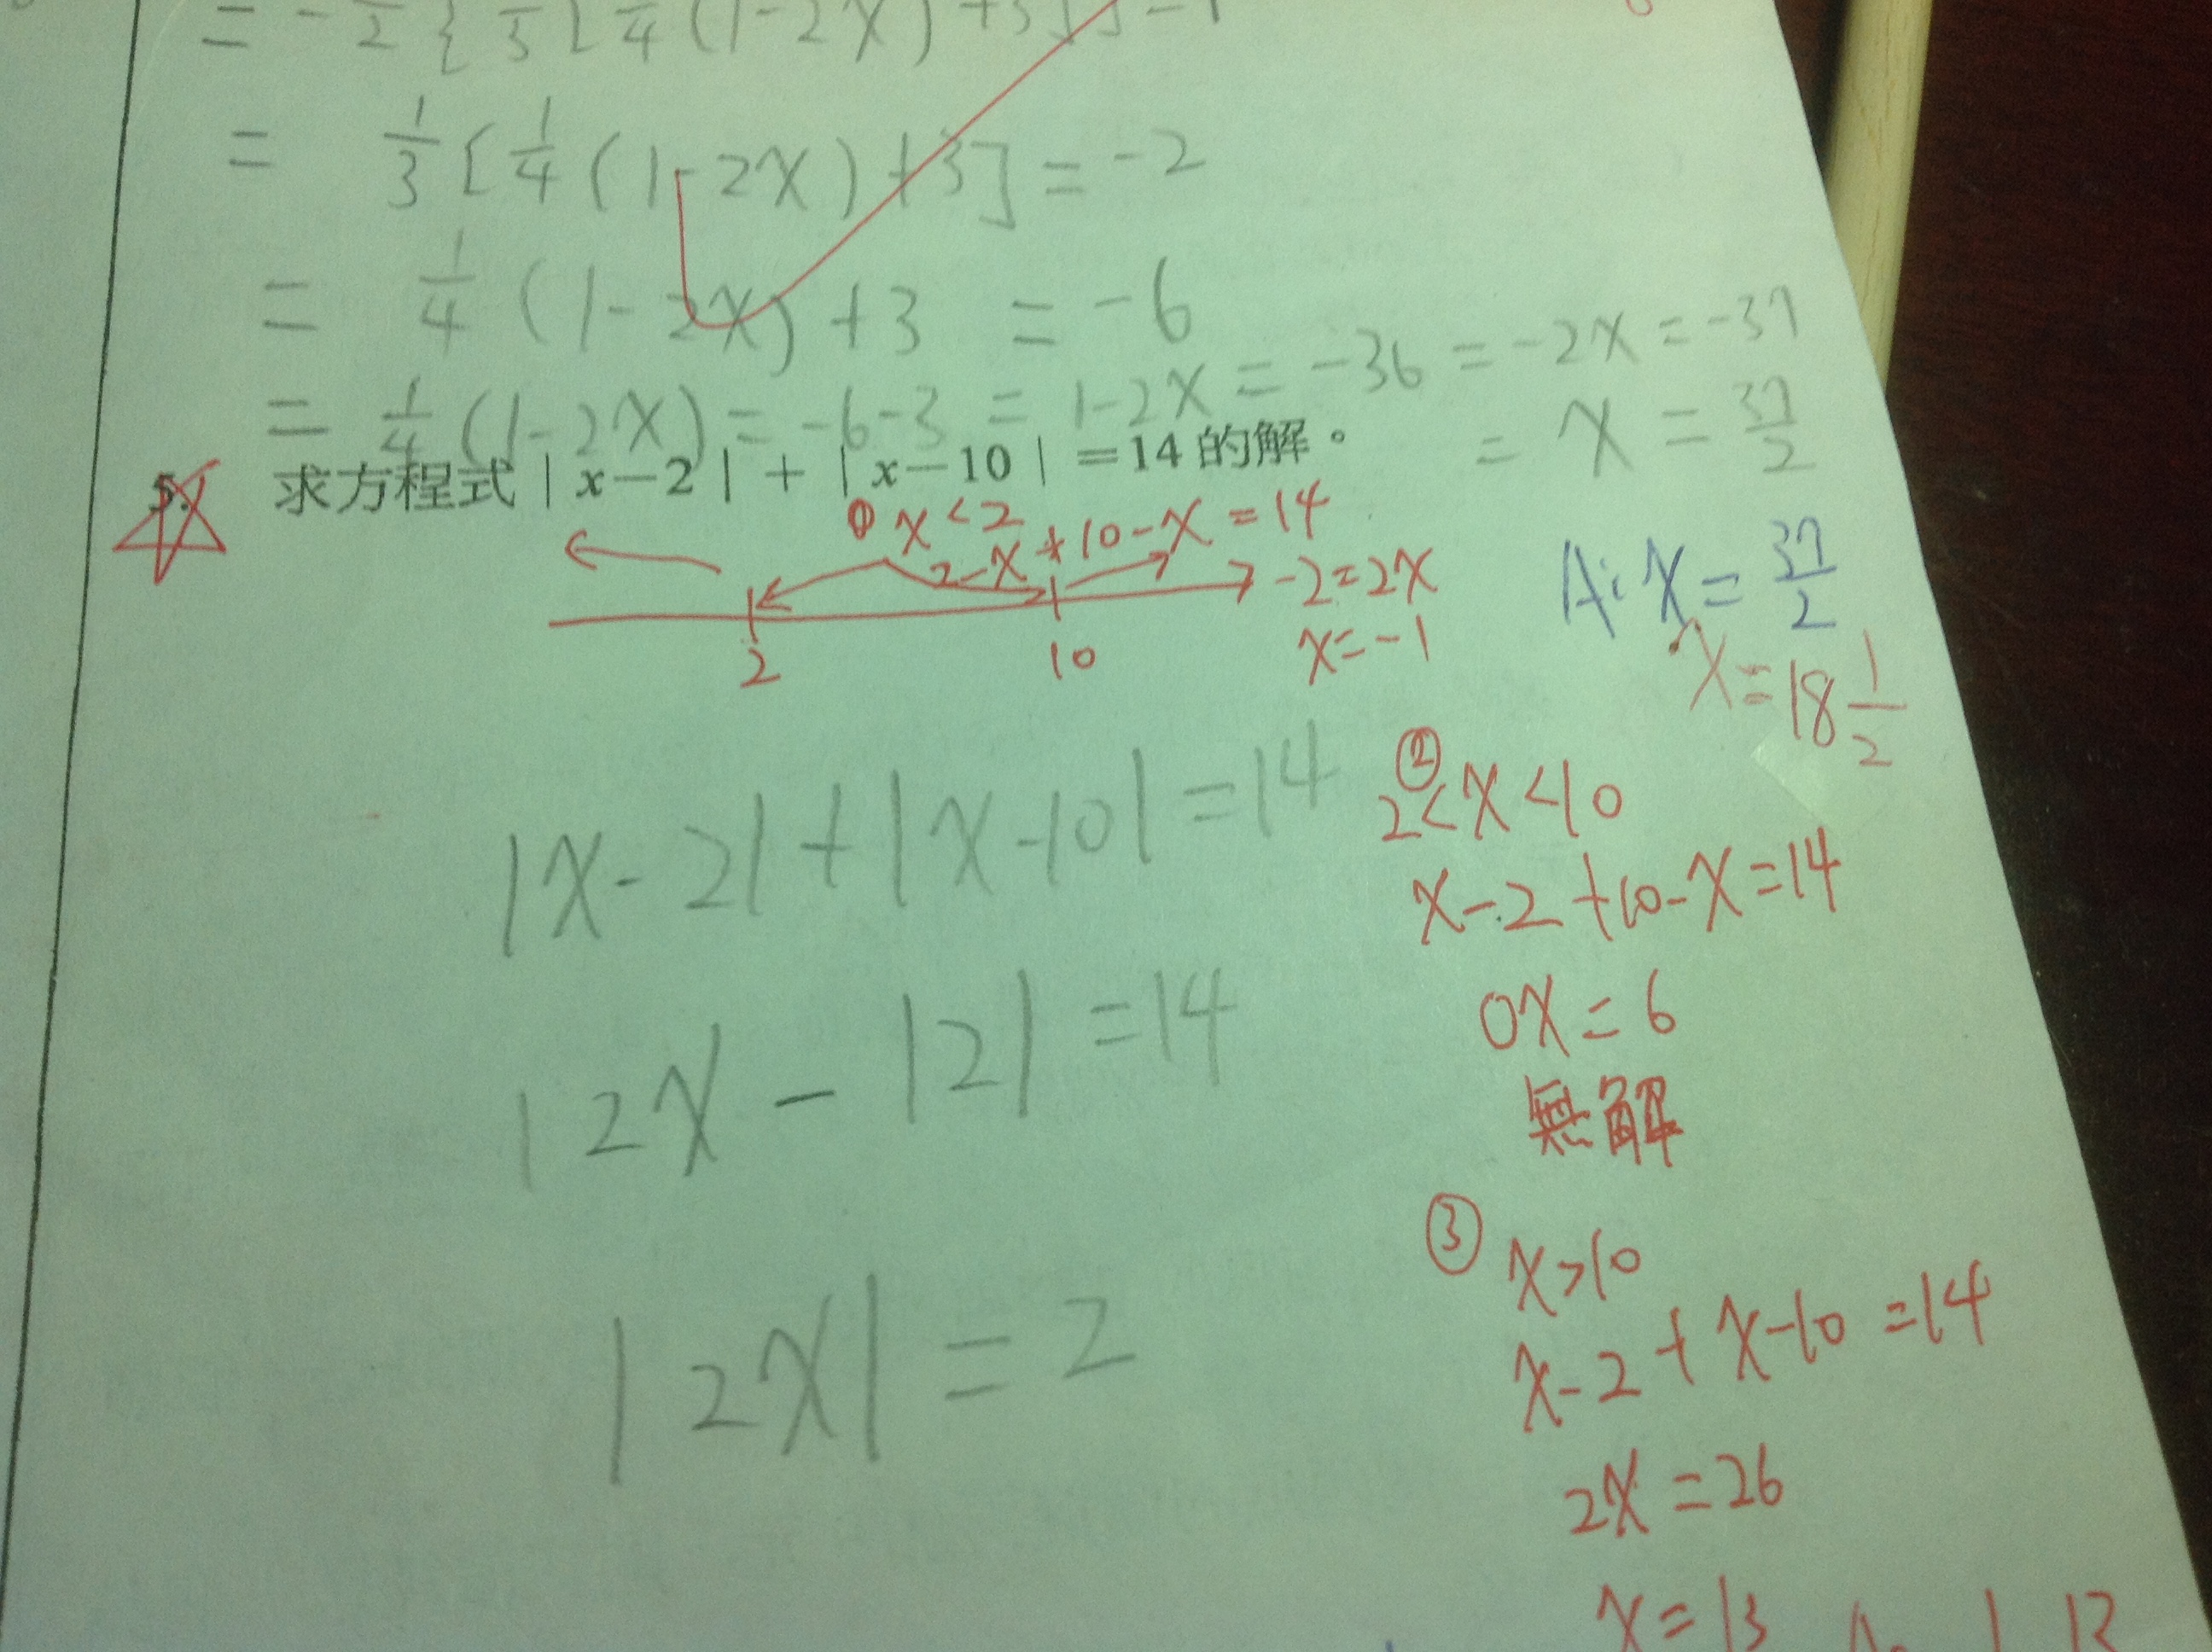 = -1/2 { 1/3 [ 1/4 (1-2x) +3 ] } = 1
= 1/3 [ 1/4 (1-2x) +3 ] = -2
= 1/4 (1-2x) +3 = -6
= 1/4 (1-2x) = -6-3 = 1-2x = -36 = -2x = -37
= x = 37/2
A: x = 37/2
x = 18 1/2
5. 求方程式|x-2|+|x-10|=14的解。
① x<2
2-x+10-x=14
-2=2x
x=-1
2 10
|x-2|+|x-10|=14
|2x-12|=14
|2x|=2
②
2<x<10
x-2+10-x=14
0x=6
無解
③ x>10
x-2+x-10=14
2x=26
x=13